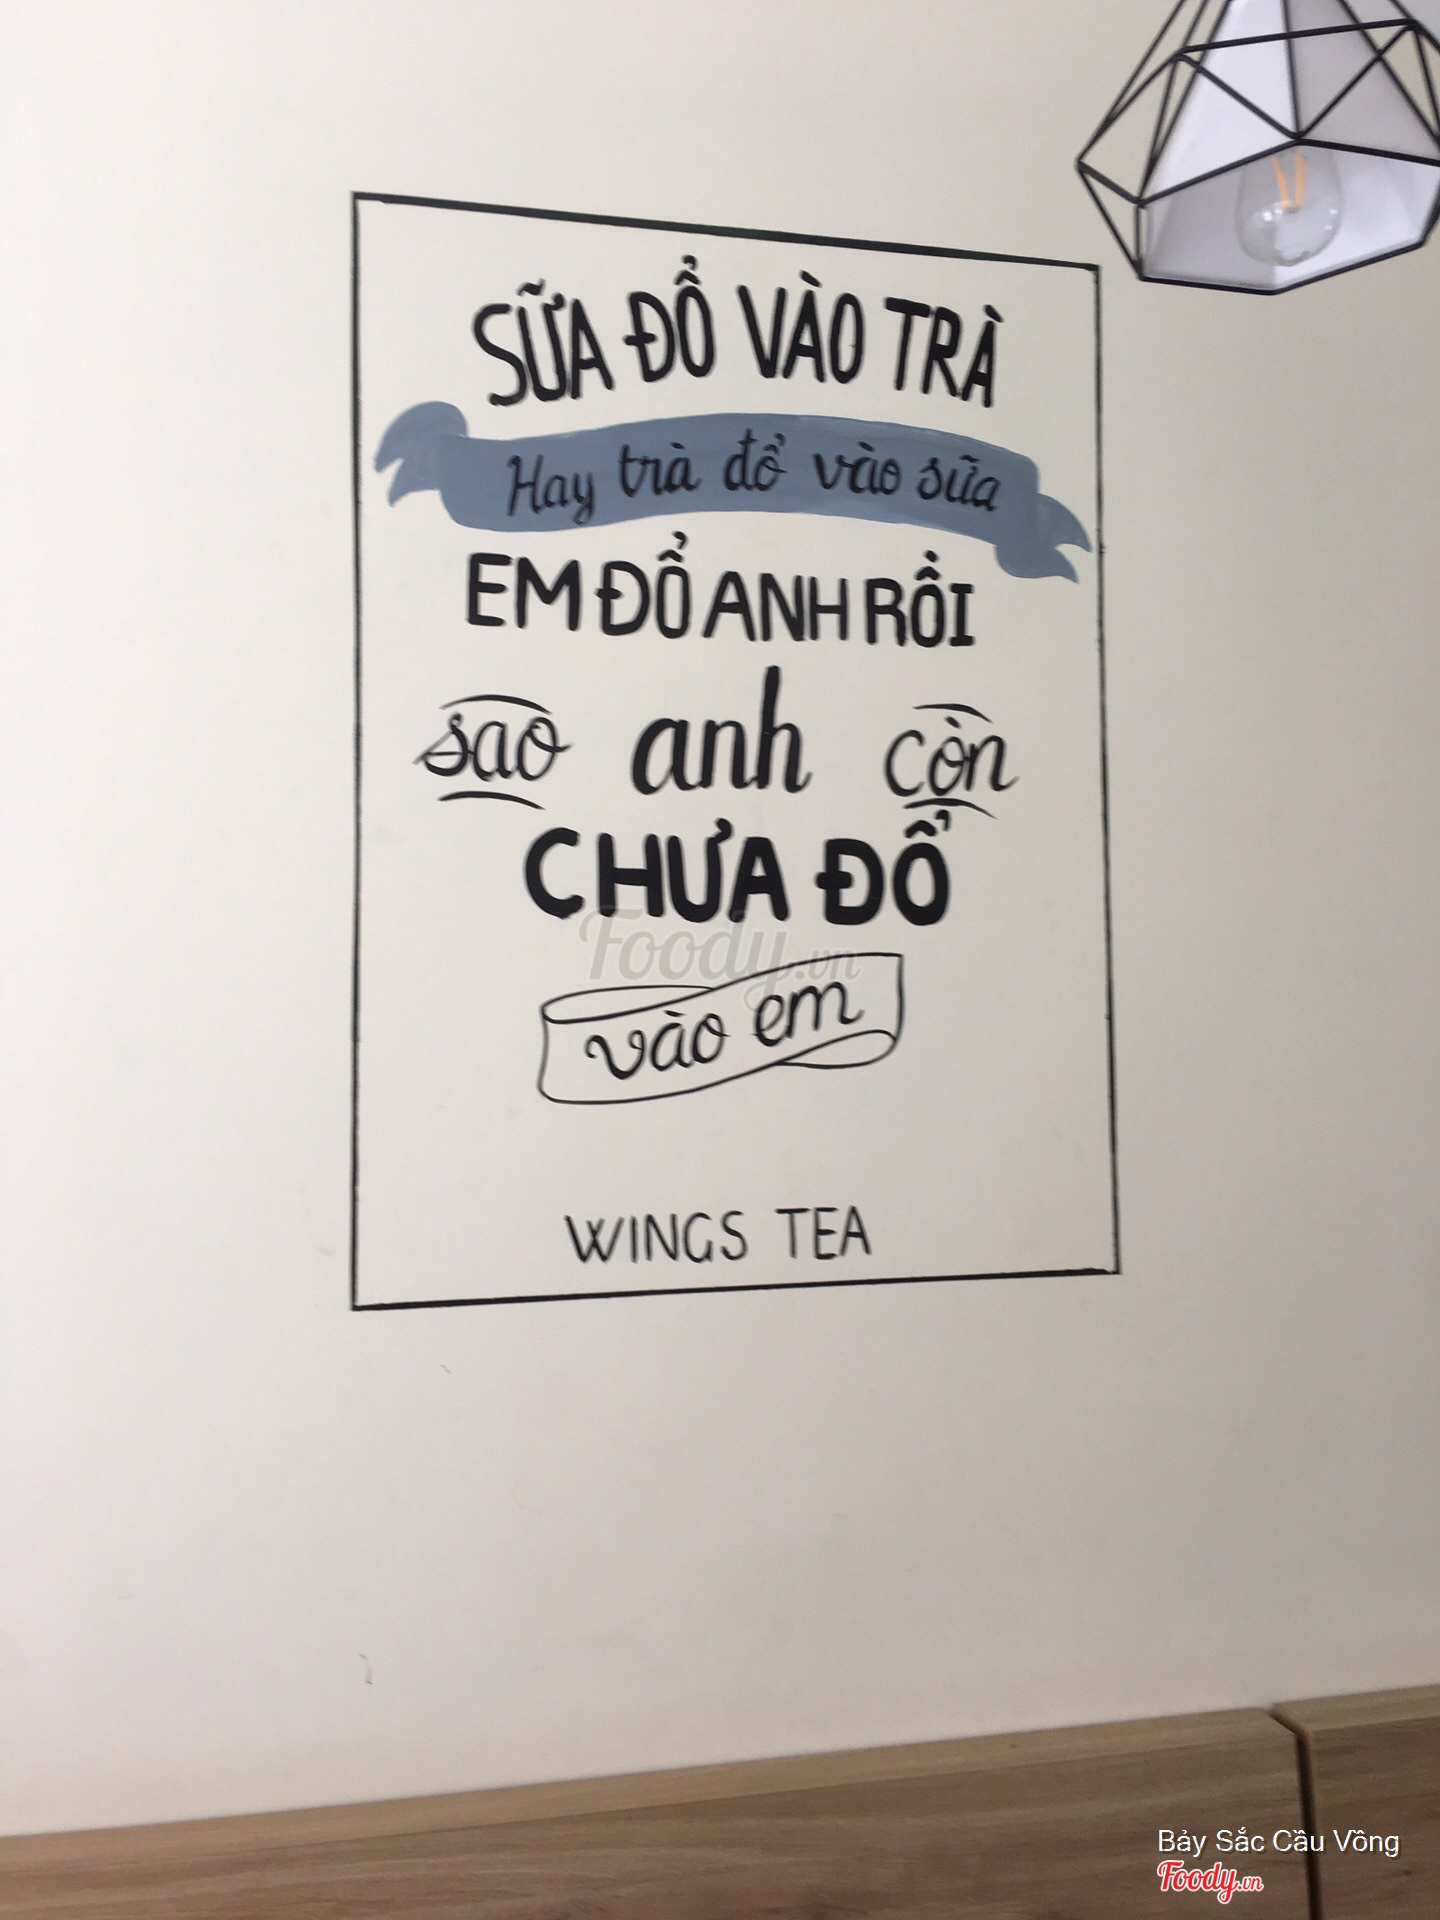 SỮA ĐỔ VÀO TRÀ
Hay trà đổ vào sữa
EM ĐỔ ANH RỒI
sao anh còn
CHƯA ĐỔ
Foody.vn
vào em
WINGS TEA
Bảy Sắc Cầu Vồng
Foody.vn